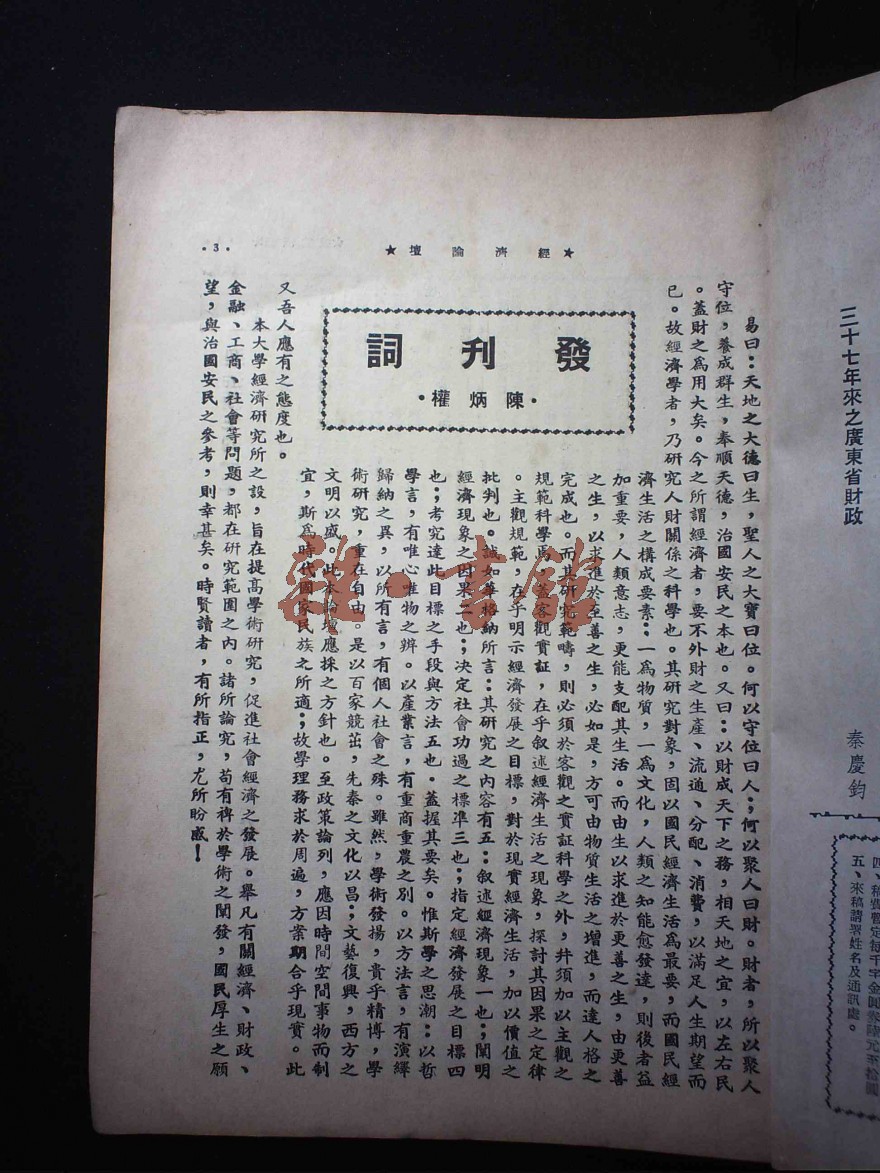 ★經濟論壇★
•3•
發刊詞
•陳炳權•
易曰：天地之大德曰生，聖人之大寶曰位。何以守位曰人；何以聚人曰財。財者，所以聚人
守位，養成群生，奉順天德，治國安民之本也。又曰：以財成天下之務，相天地之宜，以左右民
。蓋財之爲用大矣。今之所謂經濟者，要不外財之生產、流通、分配、消費，以滿足人生期望而
已。故經濟學者，乃研究人財關係之科學也。其研究對象，固以國民經濟生活爲最要，而國民經
濟生活之構成要素：一爲物質，一爲文化，人類之知能愈發達，則後者益
加重要，人類意志，更能支配其生活。而由生以求進於更善之生，由更善
之生，以求進於至善之生，必如是，方可由物質生活之增進，而達人格之
完成也。而其研究範疇，則必須於客觀之實証科學之外，井須加以主觀之
規範科學焉，蓋客觀實証，在乎叙述經濟生活之現象，探討其因果之定律
。主觀規範，在乎明示經濟發展之目標，對於現實經濟生活，加以價值之
批判也。誠如華格納所言：其研究之內容有五：叙述經濟現象一也；闡明
經濟現象之因果二也；决定社會功過之標準三也；指定經濟發展之目標四
也；考究達此目標之手段與方法五也．蓋握其要矣。惟斯學之思潮：以哲
學言，有唯心唯物之辨。以產業言，有重商重農之別。以方法言，有演繹
歸納之異，以所有言，有個人社會之殊。雖然，學術發揚，貴乎精博，學
術研究，重在自由。是以百家競茁，先秦之文化以昌；文藝復興，西方之
文明以盛。此本論壇應採之方針也。至政策論列，應因時間空間事物而制
宜，斯爲時代國家民族之所適；故學理務求於周遍，方案期合乎現實。此
又吾人應有之態度也。
本大學經濟研究所之設，旨在提高學術研究，促進社會經濟之發展。舉凡有關經濟、財政、
金融、工商、社會等問題，都在研究範圍之內。諸所論究，苟有裨於學術之闡發，國民厚生之願
望，與治國安民之參考，則幸甚矣。時賢讀者，有所指正，尤所盼感！
三十七年來之廣東省財政
秦慶鈞
五、來稿請署姓名及通訊處。
雜·書館